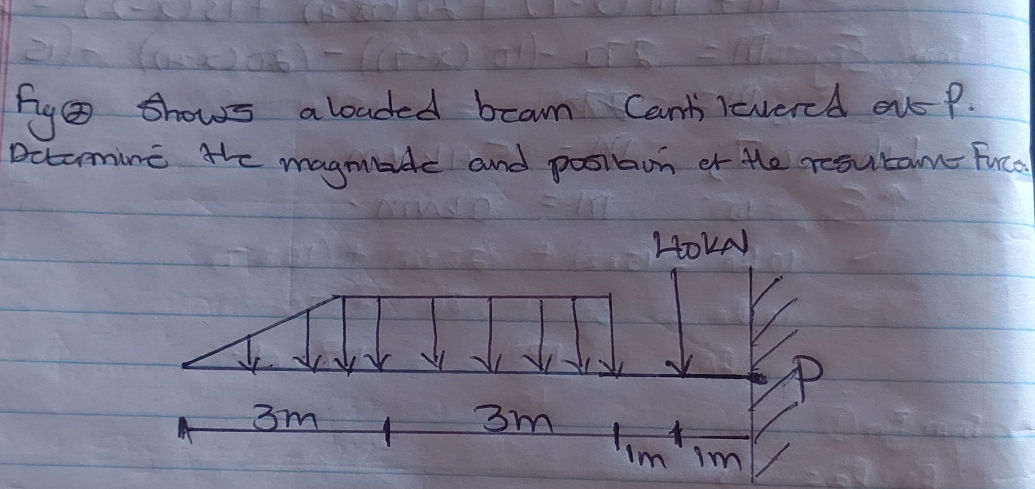 Fig ② Shows a loaded beam Cantilevered at P.
Determine the magnitude and position of the resultant Force.
40kN
P
3m 3m 1m 1m